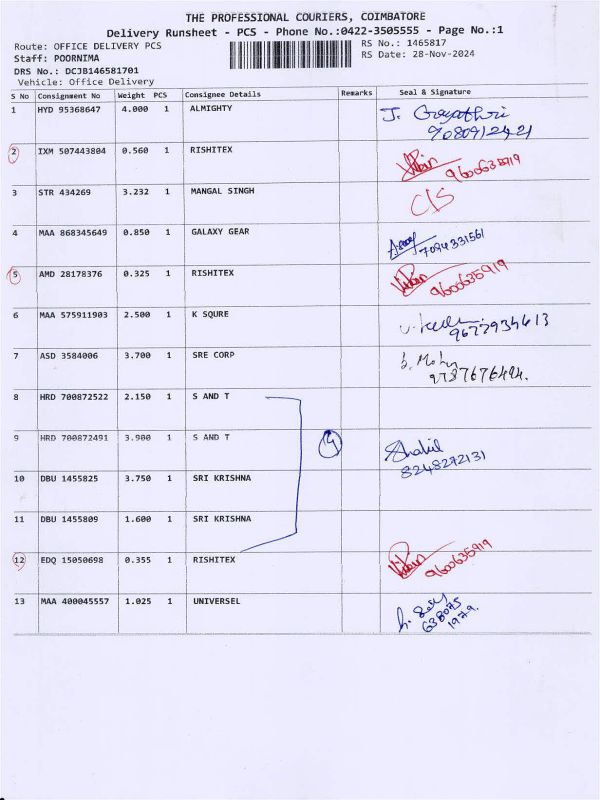 THE PROFESSIONAL COURIERS, COIMBATORE
Delivery Runsheet - PCS - Phone No.:0422-3505555 - Page No.:1
Route: OFFICE DELIVERY PCS
RS No.: 1465817
Staff: POORNIMA
RS Date: 28-Nov-2024
DRS No.: DCJB146581701
Vehicle: Office Delivery
S No Consignment No Weight PCS Consignee Details Remarks Seal & Signature
1 HYD 95368647 4.000 1 ALMIGHTY J. Gayathri
9080912421
2 IXM 507443804 0.560 1 RISHITEX 9600635919
3 STR 434269 3.232 1 MANGAL SINGH C/S
4 MAA 868345649 0.850 1 GALAXY GEAR 7094331561
5 AMD 28178376 0.325 1 RISHITEX 9600635919
6 MAA 575911903 2.500 1 K SQURE
9677934613
7 ASD 3584006 3.700 1 SRE CORP
9787676494.
8 HRD 700872522 2.150 1 S AND T
9 HRD 700872491 3.900 1 S AND T 4 Shahil
8248272131
10 DBU 1455825 3.750 1 SRI KRISHNA
11 DBU 1455809 1.600 1 SRI KRISHNA
12 EDQ 15050698 0.355 1 RISHITEX 9600635919
13 MAA 400045557 1.025 1 UNIVERSEL
638075
1979.